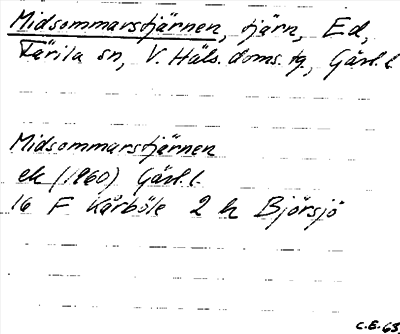 Midsommarstjärnen, tjärn, Ed,
Färila sn, V. Häls. doms. tg., Gävl. l.
Midsommarstjärnen
ek (1960) Gävl. l.
16 F Kårböle 2 h Björsjö
C.E. 63.